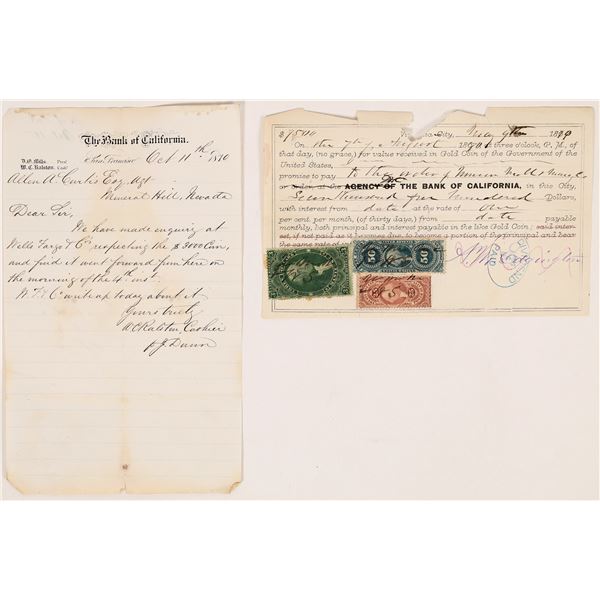 The Bank of California.
D.O. Mills, Prest
W.C. Ralston, Cash'r
San Francisco Oct 11th 1870
Allen A. Curtis Esq. Agt
Mineral Hill, Nevada
Dear Sir,
We have made enquiry at
Wells Fargo & Co. respecting the $3000 Coin,
and find it went forward from here on
the morning of the 4th inst.
W. F. & Co. write up today about it
Yours truly
W C Ralston Cashier
$7500 Virginia City, May 9th 1870
On the 7th of August 1870 at three o'clock, P. M., of
that day, (no grace,) for value received in Gold Coin of the Government of the
United States, promise to pay
To the order of
or order, at the AGENCY OF THE BANK OF CALIFORNIA, in this City,
Seven thousand five hundred Dollars,
with interest from date at the rate of one
per cent. per month, (of thirty days,) from date payable
monthly, both principal and interest payable in like Gold Coin; said inter-
est, if not paid as it becomes due, to become a portion of the principal and bear
the same rate of
50 50
PAID